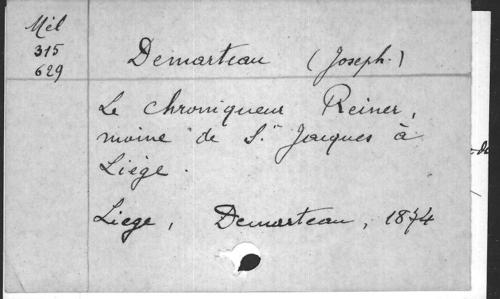 Mél
315
629
Demarteau (Joseph.)
Le chroniqueur Reiner,
moine de St Jacques à
Liège.
Liege, Demarteau, 1874